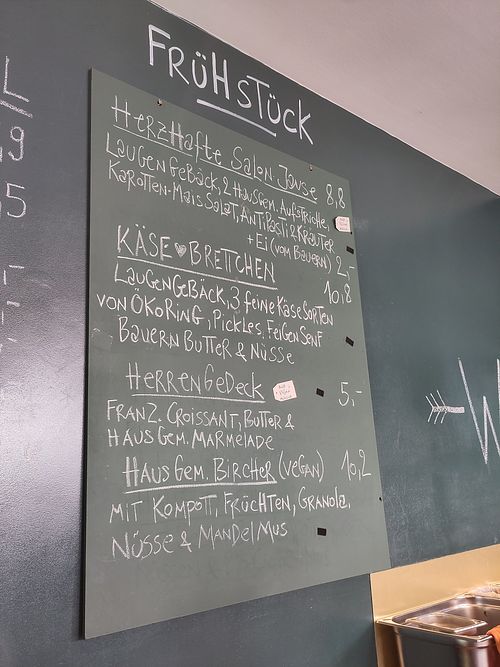 FRÜHSTÜCK
HerzHafte Salon Jause 8,8
LAUGENGEBÄCK, 2 HAUSGEM. AUFSTRICHE,
KAROTTEN-MAIS SALAT, ANTIPASTI & KRÄUTER
+ Ei (vom BAUERN) 2,-
KÄSE♥BRETTCHEN 10,8
LAUGENGEBÄCK, 3 feine KÄSESORTEN
VON ÖKORING, PICKLES, FEIGENSENF
BAUERN BUTTER & NÜSSE
HERRENGEDECK 5,-
FRANZ. CROISSANT, BUTTER &
HAUSGEM. MARMELADE
HAUSGEM. BIRCHER (VEGAN) 10,2
MIT KOMPOTT, FRÜCHTEN, GRANOLA,
NÜSSE & MANDELMUS
L
9
5
W